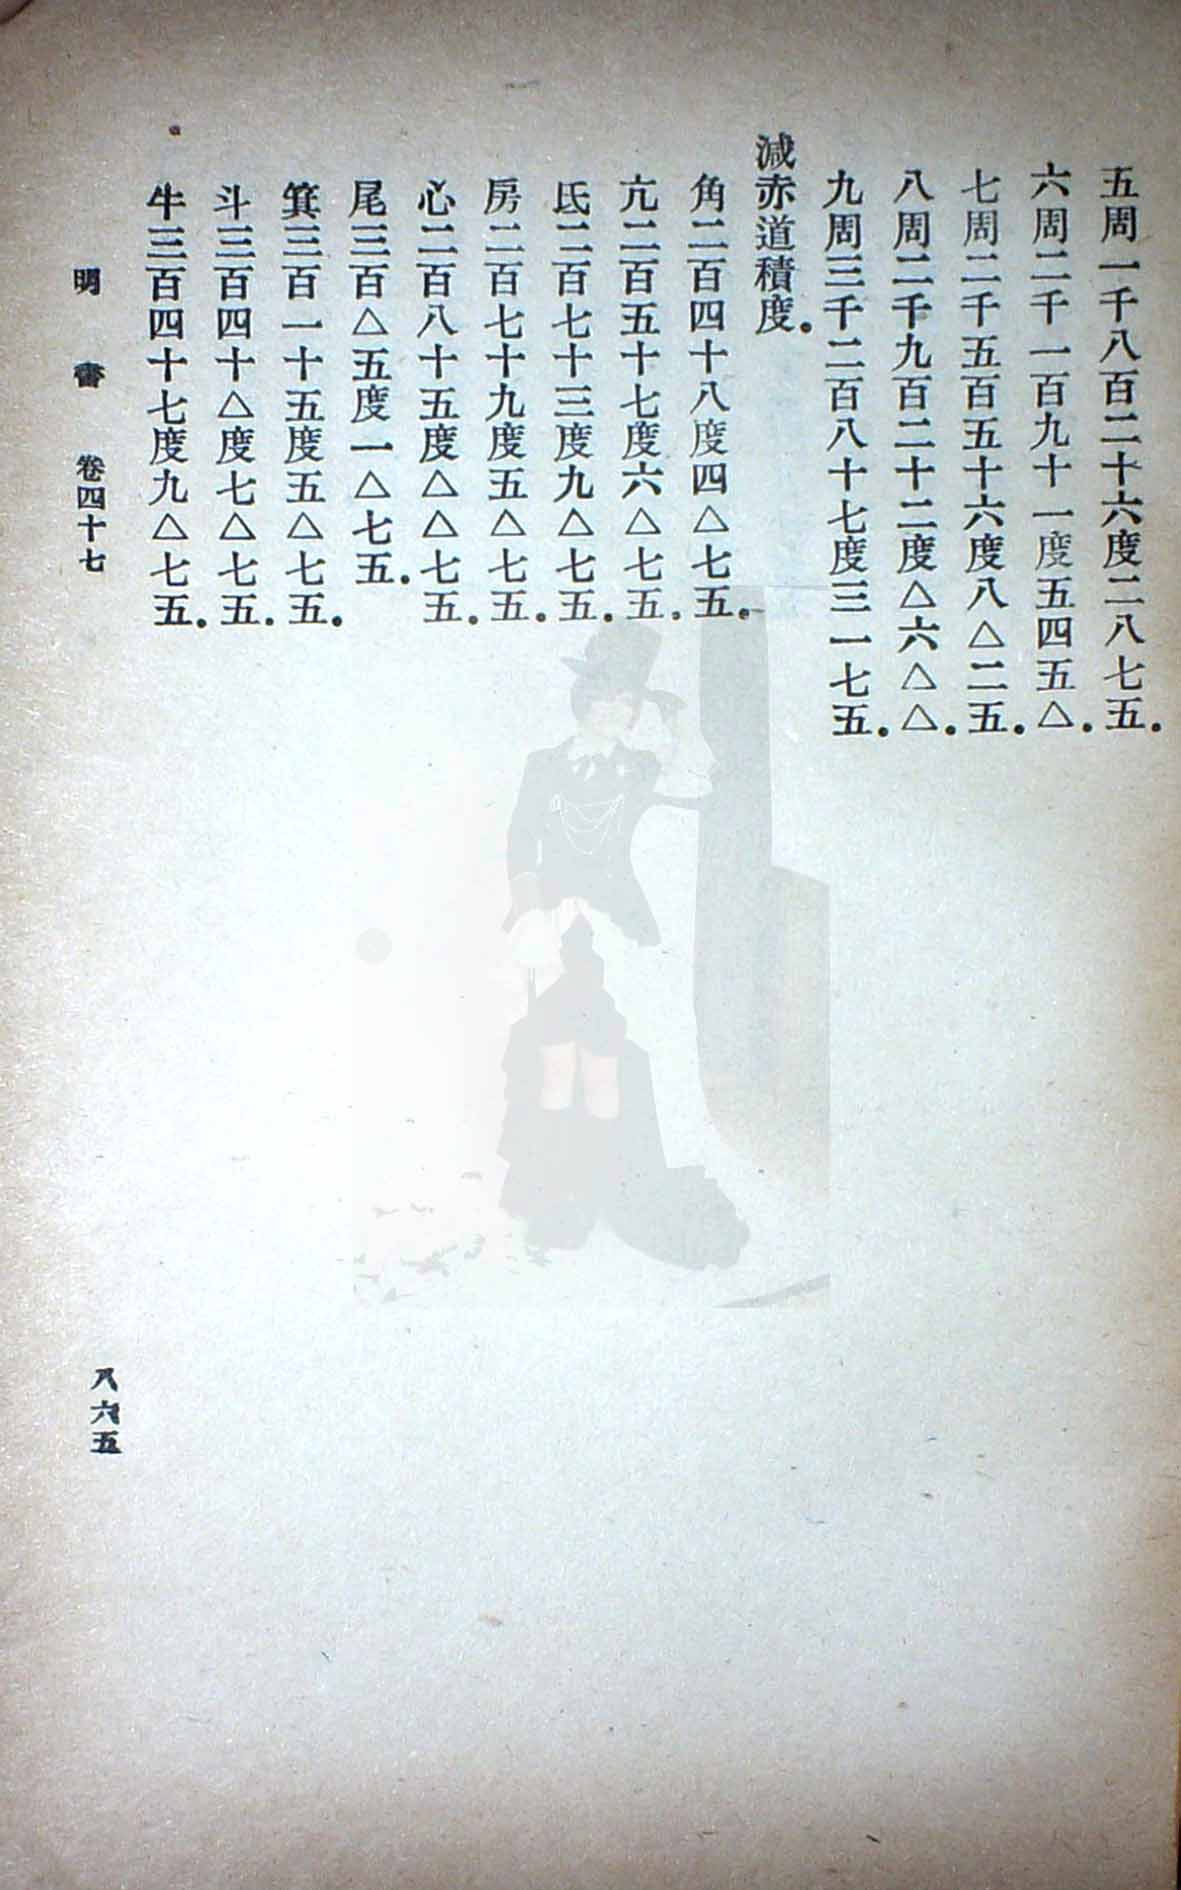 五周一千八百二十六度二八七五。
六周二千一百九十一度五四五△。
七周二千五百五十六度八△二五。
八周二千九百二十二度△六△△。
九周三千二百八十七度三一七五。
減赤道積度。
角二百四十八度四△七五。
亢二百五十七度六△七五。
氐二百七十三度九△七五。
房二百七十九度五△七五。
心二百八十五度△△七五。
尾三百△五度一△七五。
箕三百一十五度五△七五。
斗三百四十△度七△七五。
牛三百四十七度九△七五。
明書 卷四十七
八六五